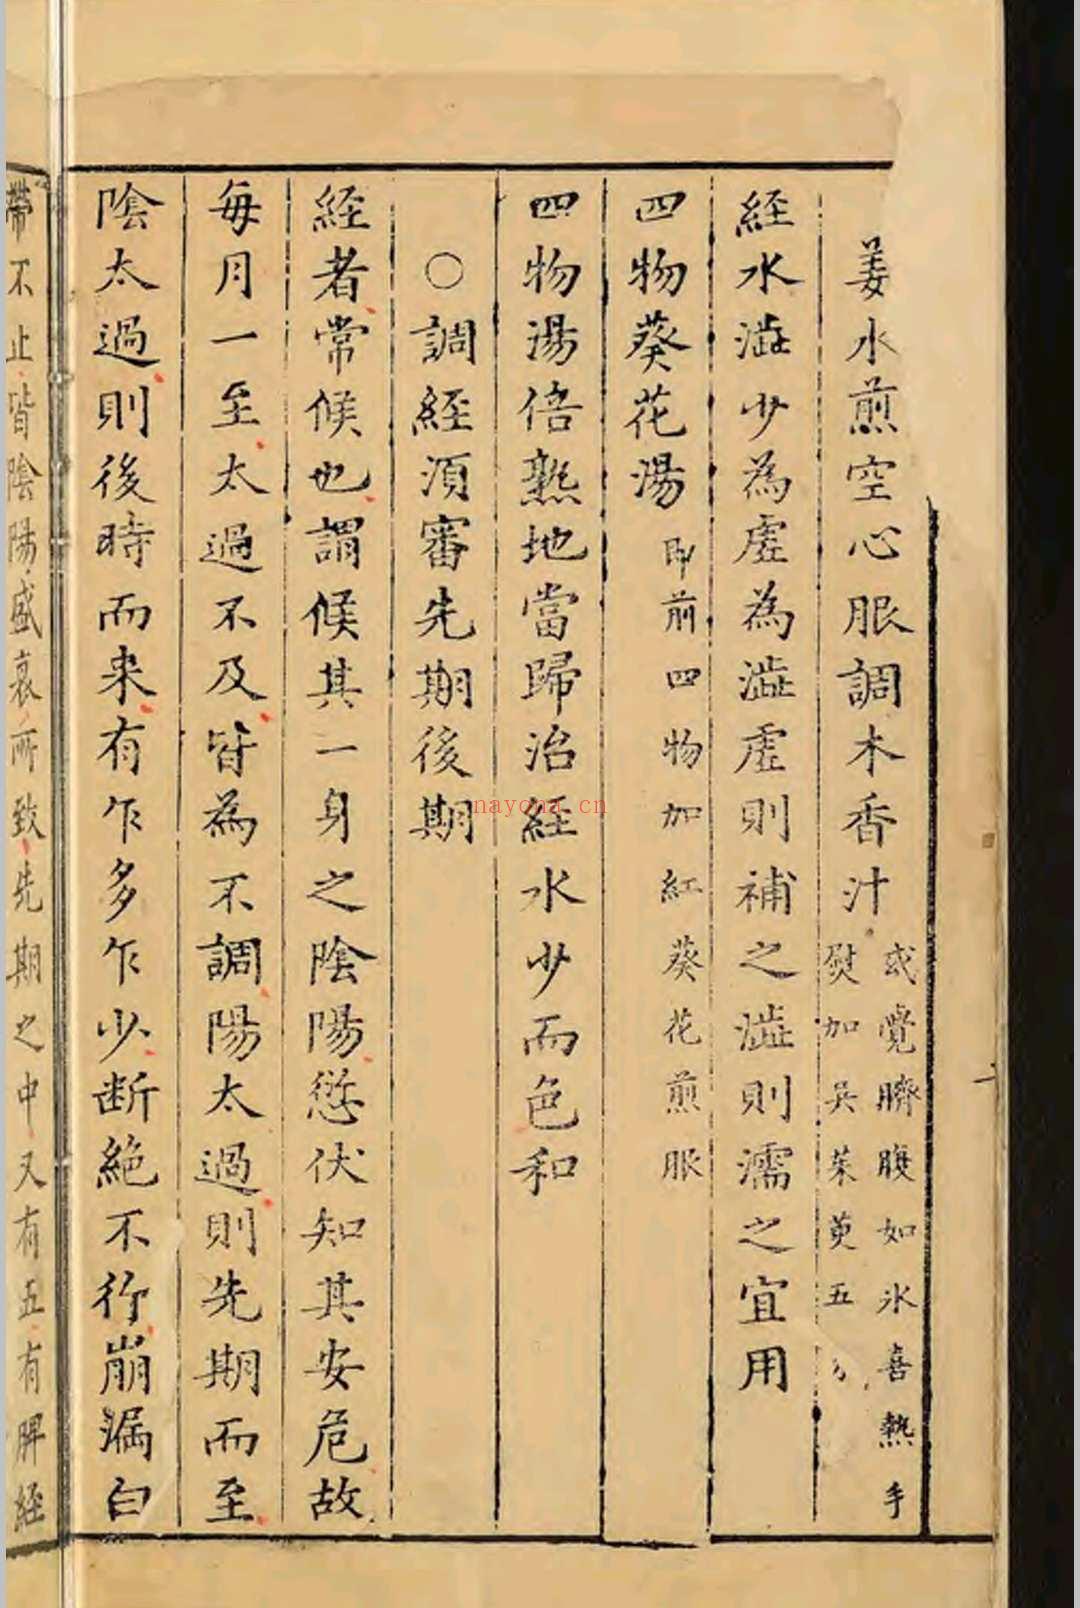 姜水煎空心服調木香汁或覺臍腹如氷喜熱手熨加吳茱萸五
經水澁少為虛為澁虛則補之澁則濡之宜用
四物葵花湯即前四物加紅葵花煎服
四物湯倍熟地當歸治經水少而色和
○調經須審先期後期
經者常候也謂候其一身之陰陽愆伏知其安危故
每月一至太過不及皆為不調陽太過則先期而至
陰太過則後時而来有乍多乍少断絶不行崩漏白
帶不止皆陰陽盛衰所致先期之中又有五有脾經
nayona.cn